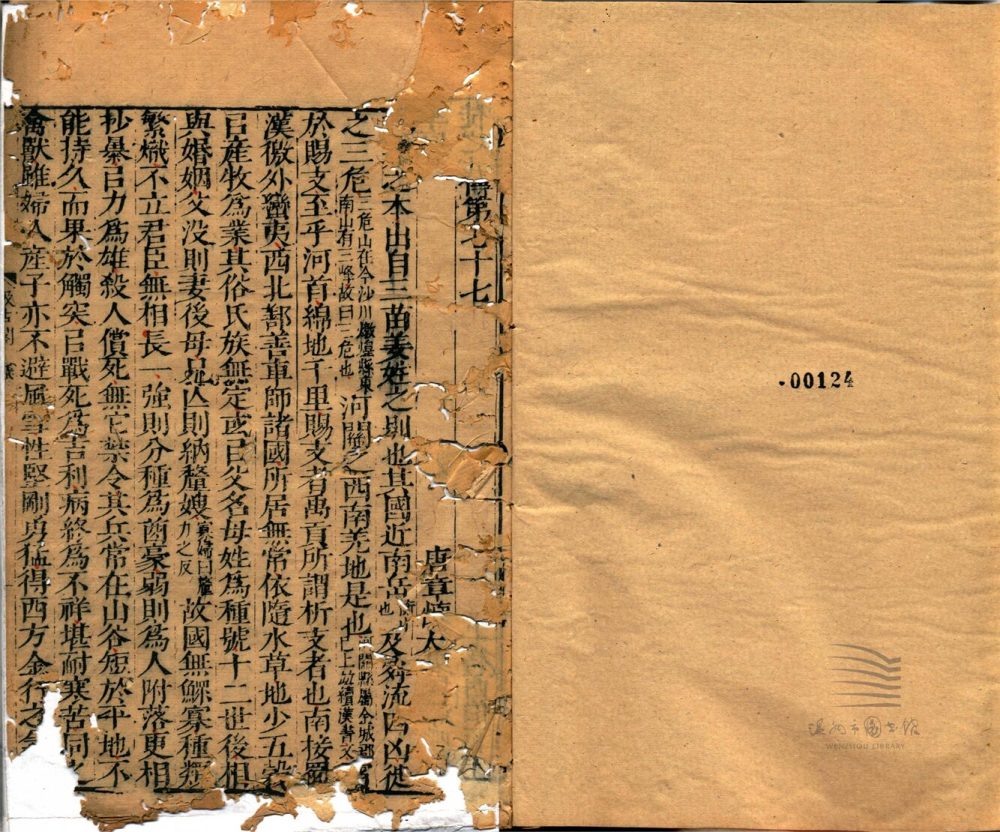 傳第七十七
唐章懷太
之本出自三苗姜姓之別也其國近南岳衡山也及舜流四凶徙
之三危三危山在今沙州燉煌縣東南山有三峰故曰三危也河關之西南羌地是也河關縣屬金城郡已上並續漢書文
於賜支至乎河首綿地千里賜支者禹貢所謂析支者也南接蜀
漢徼外蠻夷西北鄯善車師諸國所居無常依隨水草地少五穀
㠯產牧為業其俗氏族無定或㠯父名母姓為種號十二世後相
與婚姻父没則妻後母兄亡則納釐嫂寡婦曰釐力之反故國無鰥寡種類
繁熾不立君臣無相長一強則分種為酋豪弱則為人附落更相
抄暴㠯力為雄殺人償死無它禁令其兵常在山谷短於平地不
能持久而果於觸突㠯戰死為吉利病終為不祥堪耐寒苦同之
禽獸雖婦人產子亦不避風雪性堅剛勇猛得西方金行之氣
.00124
温州市图书馆
WENZHOU LIBRARY